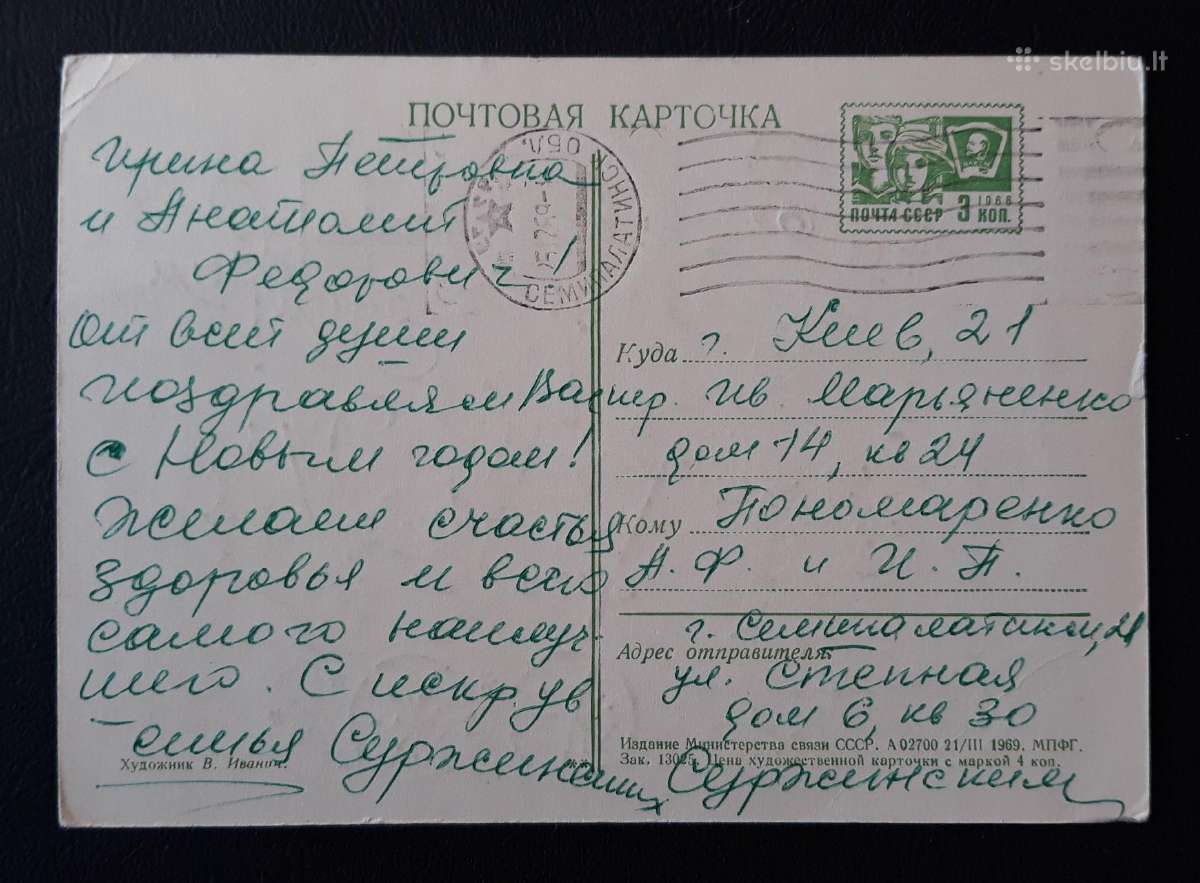 skelbiu.lt
ПОЧТОВАЯ КАРТОЧКА
ПОЧТА СССР 3 КОП.
1966
СЕМИПАЛАТИНСК ОБЛ.
Ирина Петровна
и Анатолий
Федорович!
От всей души
поздравляем Вас
с Новым годом!
Желаем счастья
здоровья и всего
самого наилуч-
шего. С искр. ув
семья Суржинских
Художник В. Иванов.
Куда г. Киев, 21
пер. Ив. Марьяненко
дом 14, кв 24
Кому Пономаренко
А. Ф. и И. П.
г. Семипалатинск, 21
Адрес отправителя:
ул. Степная
дом 6, кв 30
Издание Министерства связи СССР. А 02700 21/III 1969. МПФГ.
Зак. 13025. Цена художественной карточки с маркой 4 коп.
Суржинским